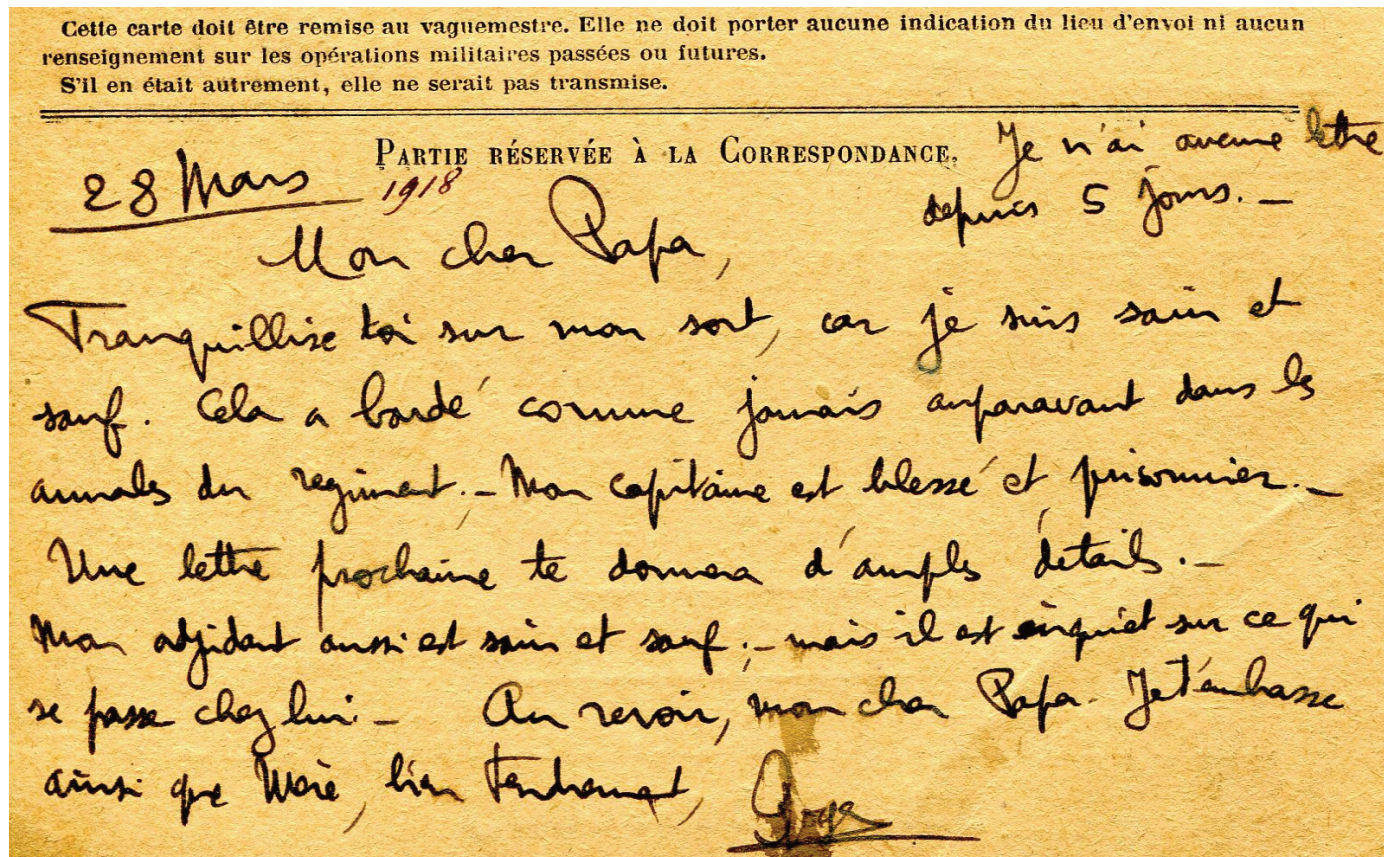 Cette carte doit être remise au vaguemestre. Elle ne doit porter aucune indication du lieu d'envoi ni aucun
renseignement sur les opérations militaires passées ou futures.
S'il en était autrement, elle ne serait pas transmise.
PARTIE RÉSERVÉE À LA CORRESPONDANCE.
Je n'ai aucune lettre
depuis 5 jours. —
28 Mars 1918
Mon cher Papa,
Tranquillise toi sur mon sort, car je suis sain et
sauf. Cela a bardé comme jamais auparavant dans les
annales du regiment. — Mon capitaine est blessé et prisonnier. —
Une lettre prochaine te donnera d'amples détails. —
Mon adjudant aussi est sain et sauf ; — mais il est inquiet sur ce qui
se passe chez lui — Au revoir, mon cher Papa. Je t'embrasse
ainsi que , bien tendrement,